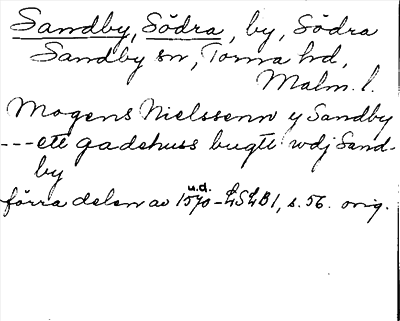 Sandby, Södra, by, Södra
Sandby sn, Torna hd,
Malm. l.
Mogens Nielssenn y Sandby
---ett gadehuss bugtt wdj Sand-
by
u.d.
förra delen av 1570- LSLB1, s. 56. orig.